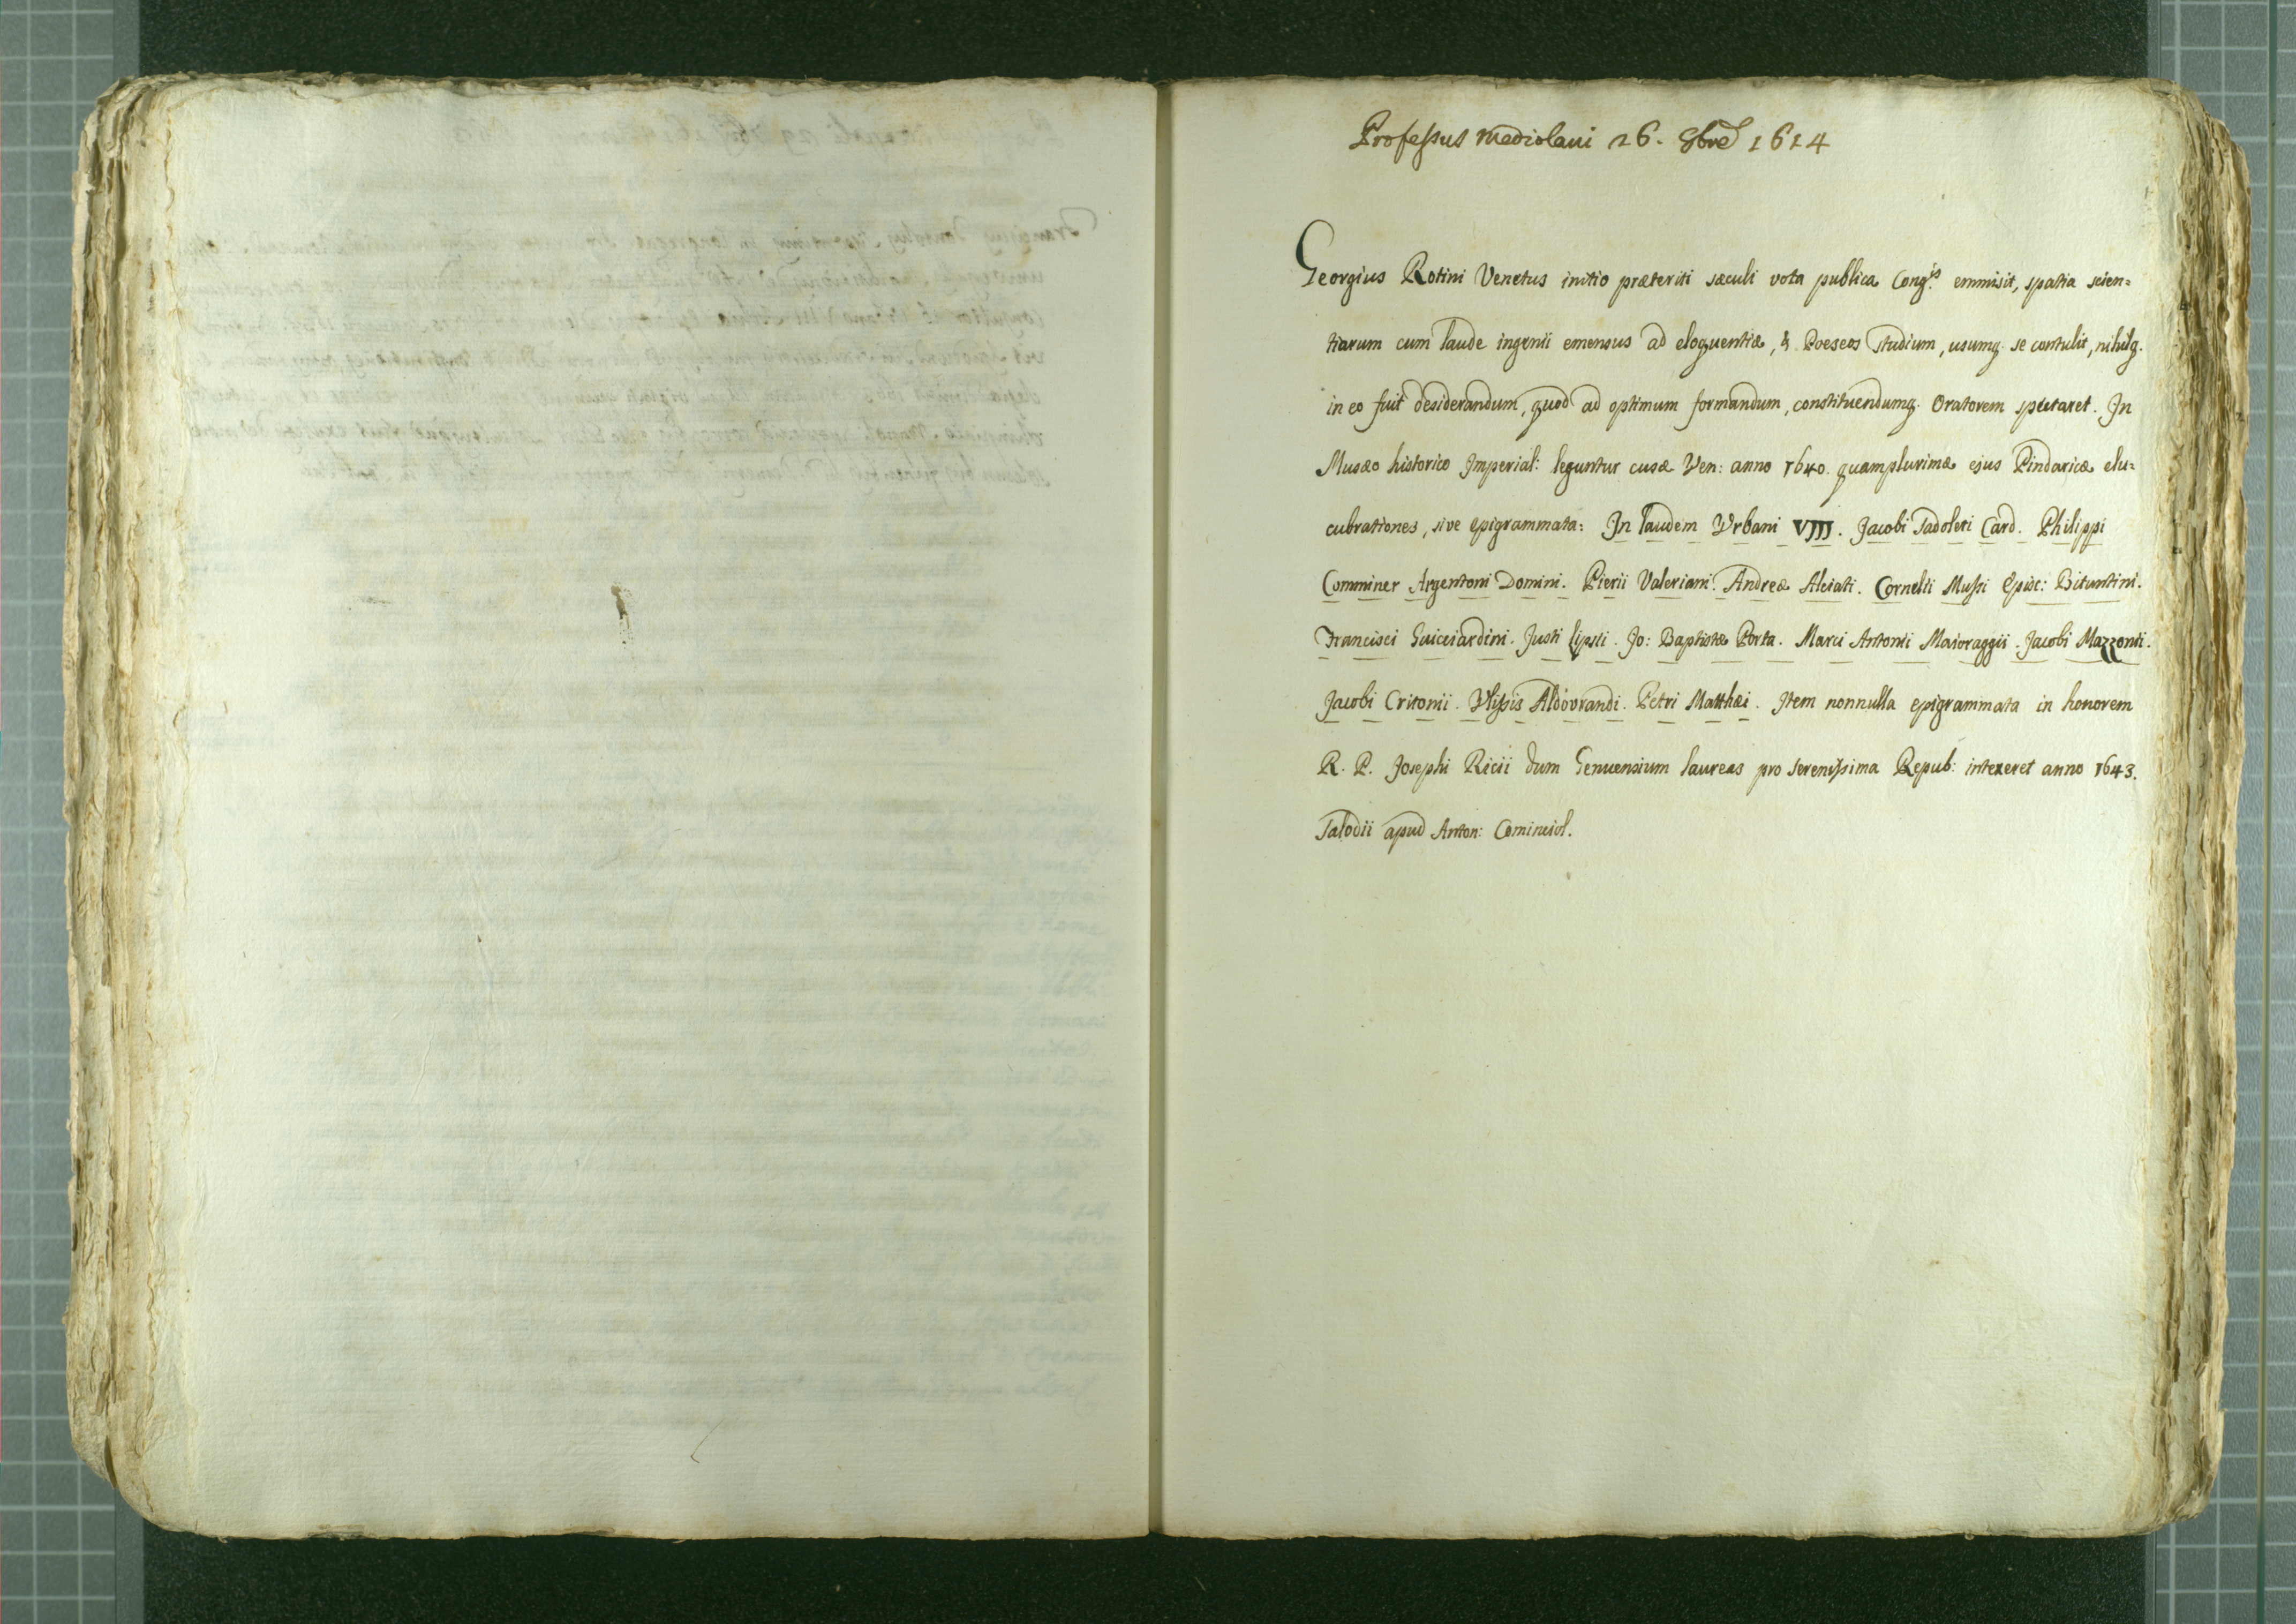 Professus Mediolani 26. 8bre 1614
Georgius Rotini Venetus initio præteriti sæculi vota publica Cong.is emmisit, spatia scien=
tiarum cum laude ingenii emensus ad eloquentiæ, & Poeseos Studium, usumq. se contulit, nihilq.
in eo fuit desiderandum, quod ad optimum formandum, constituendumq. Oratorem spectaret. In
Musæo historico Imperial: leguntur cusæ Ven: anno 1640. quamplurimæ ejus Pindaricæ elu=
cubrationes, sive epigrammata: In laudem Urbani VJJJ. Jacobi Sadoleti Card. Philippi
Comminer Argentoni Domini. Pierii Valeriani. Andreæ Alciati. Cornelii Mussi Episc: Bituntini.
Francisci Guicciardini. Justi Lipsii. Jo: Baptistæ Porta. Marci Antonii Maioraggii. Jacobi Mazzonii.
Jacobi Critonii. Ulissis Aldovrandi. Petri Matthæi. Item nonnulla epigrammata in honorem
R. P. Josephi Ricii dum Genuensium laureas pro serenissima Repub: intexeret anno 1643.
Salodii apud Anton: Cominciol.